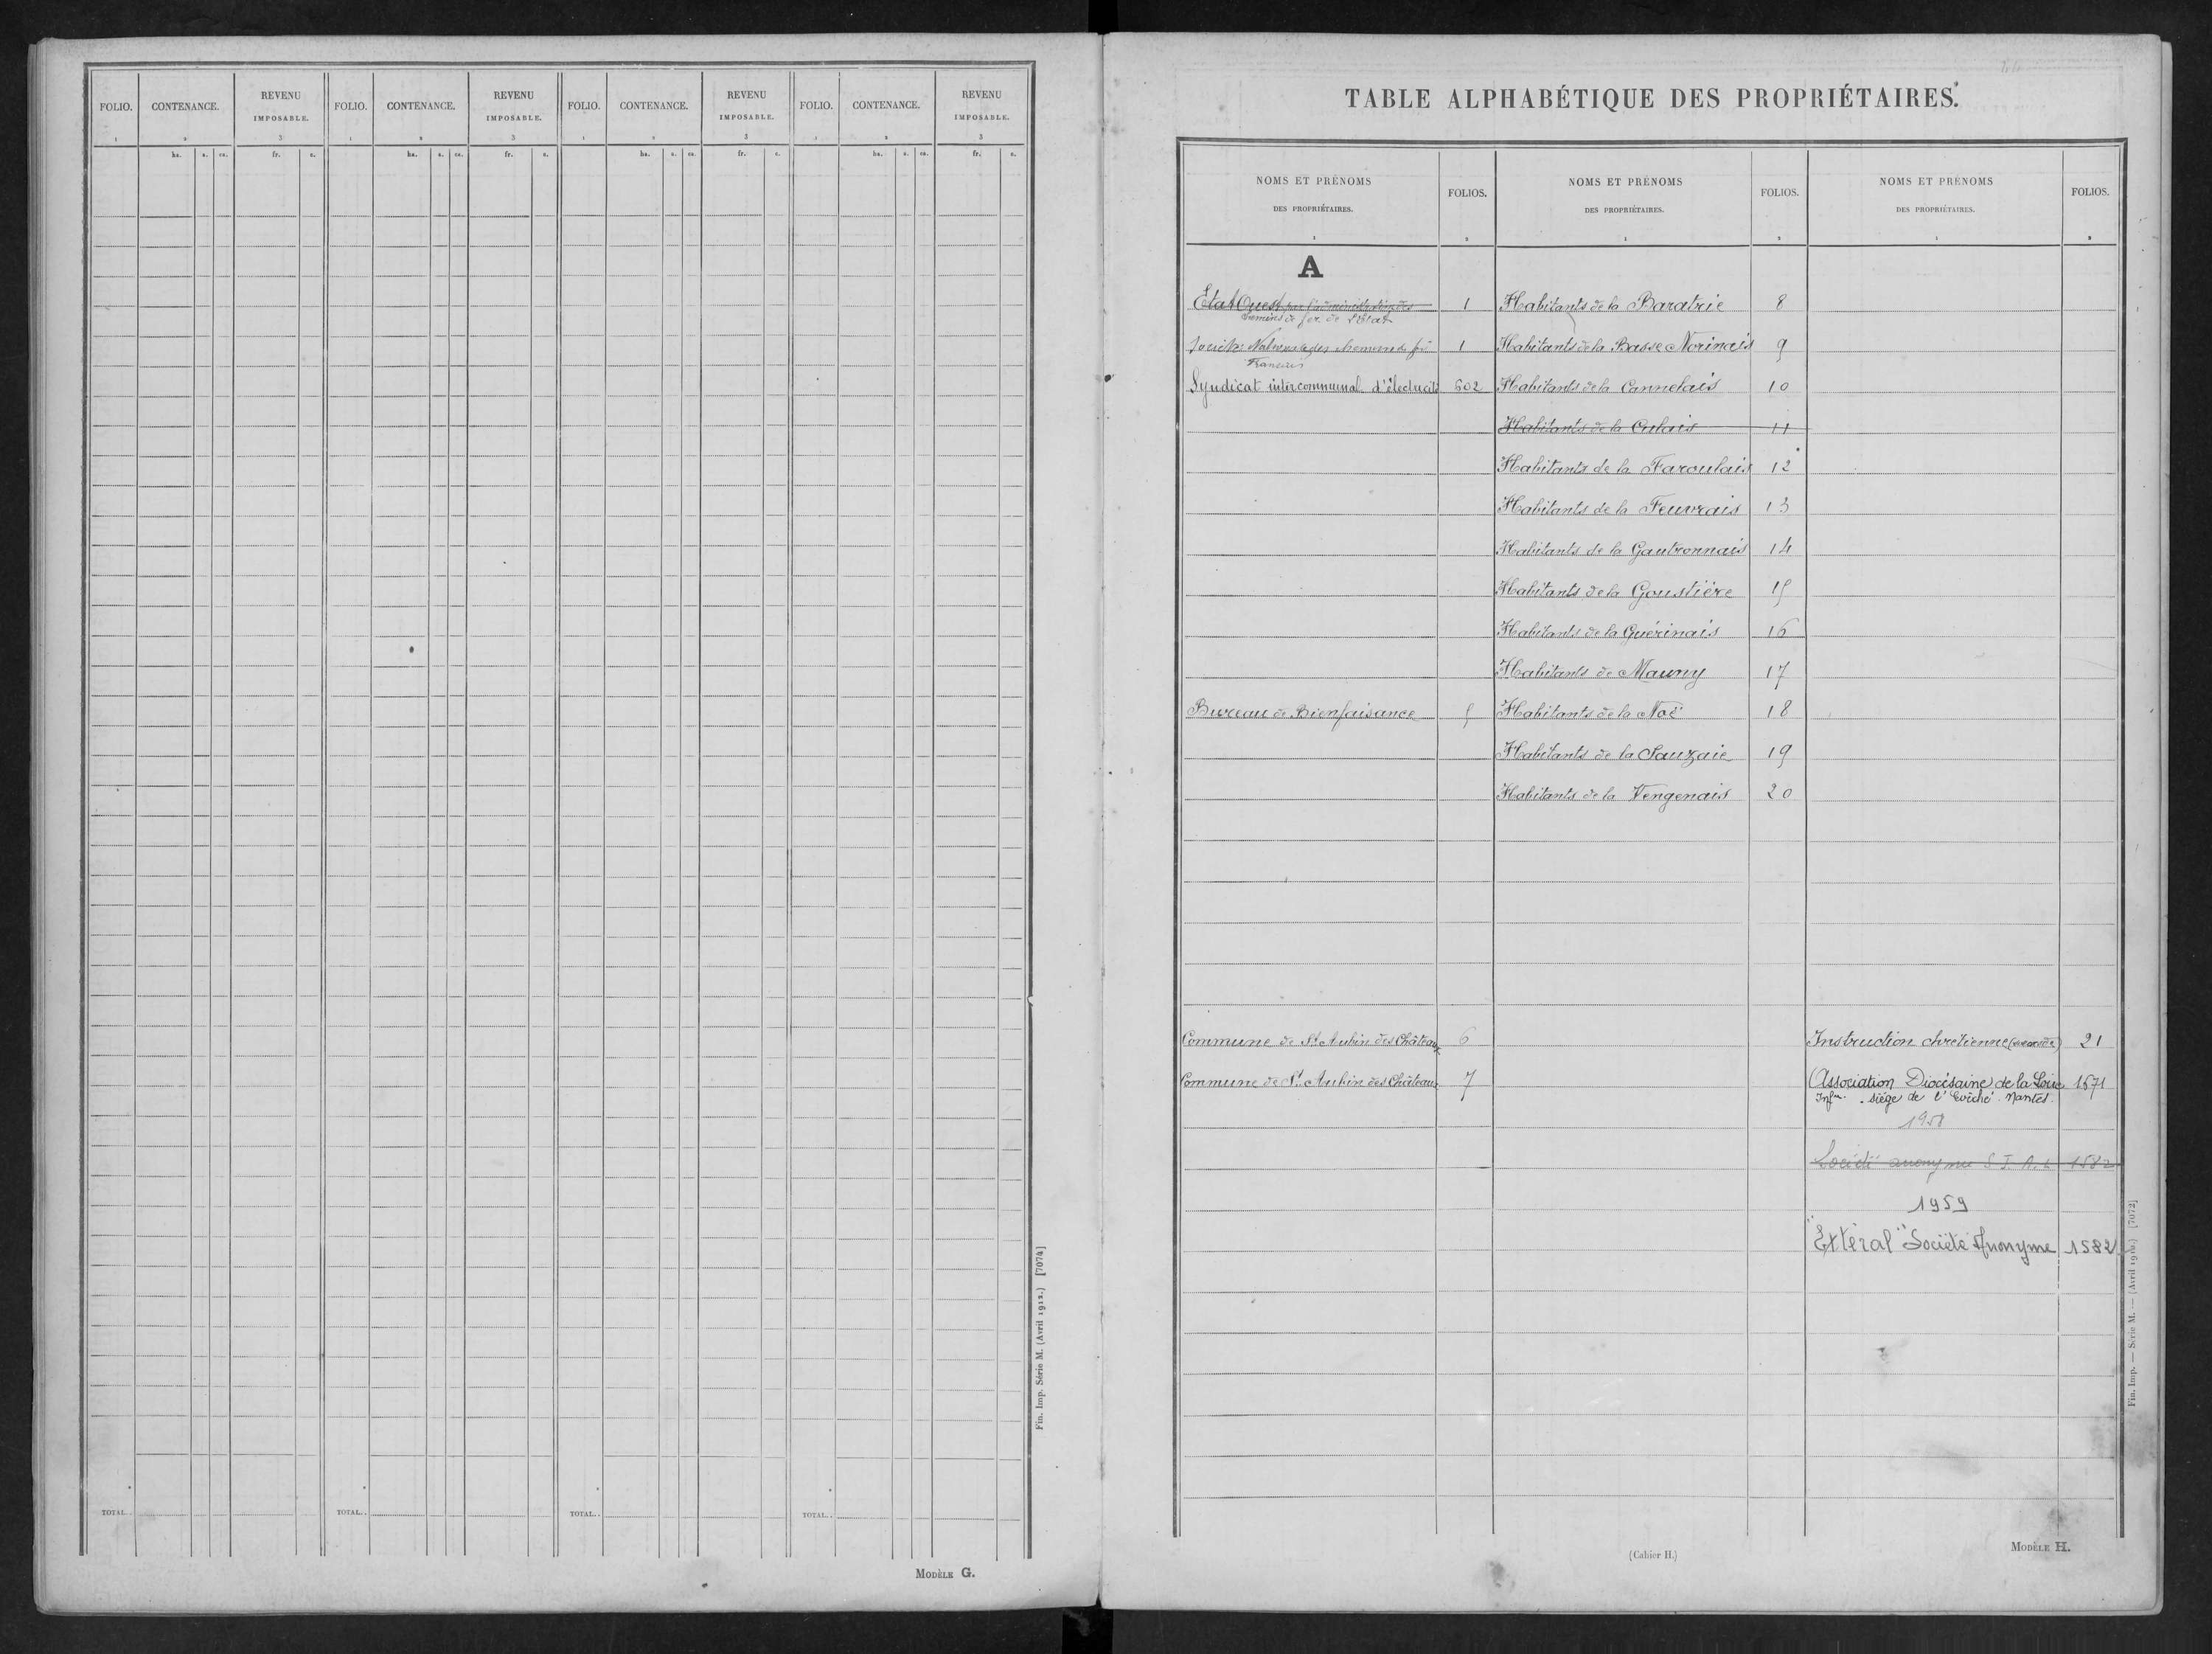 FOLIO. CONTENANCE. REVENU IMPOSABLE. FOLIO. CONTENANCE. REVENU IMPOSABLE. FOLIO. CONTENANCE. REVENU IMPOSABLE. FOLIO. CONTENANCE. REVENU IMPOSABLE.
1 2 3 1 2 3 1 2 3 1 2 3
ha. a. ca. fr. c. ha. a. ca. fr. c. ha. a. ca. fr. c. ha. a. ca. fr. c.
TOTAL.. TOTAL.. TOTAL.. TOTAL..
Fin. Imp. Série M. (Avril 1912.) [7074]
MODÈLE G.
TABLE ALPHABÉTIQUE DES PROPRIÉTAIRES.
NOMS ET PRÉNOMS
DES PROPRIÉTAIRES.
1
FOLIOS.
2
A
État Ouest par l'administration des 1
Chemins de fer de l'État
Société Nationale des chemins de fer 1
Français
Syndicat intercommunal d'électricité 602
Bureau de Bienfaisance 5
Commune de St Aubin des Châteaux 6
Commune de St Aubin des Châteaux 7
NOMS ET PRÉNOMS
DES PROPRIÉTAIRES.
1
FOLIOS.
2
Habitants de la Baratrie 8
Habitants de la Basse Norinais 9
Habitants de la Cannelais 10
Habitants de la Culais 11
Habitants de la Faroulais 12
Habitants de la Feuvrais 13
Habitants de la Gautronnais 14
Habitants de la Goustière 15
Habitants de la Guérinais 16
Habitants de Mauny 17
Habitants de la Noë 18
Habitants de la Sauzaie 19
Habitants de la Vengenais 20
NOMS ET PRÉNOMS
DES PROPRIÉTAIRES.
1
FOLIOS.
2
Instruction chrétienne 21
Association Diocésaine de la Loire 1571
Infre. siège de l'Evêché Nantes
1958
Société anonyme 1582
1959
"Extéral" Société Anonyme 1582
(Cahier H.)
MODÈLE H.
Fin. Imp. — Série M. — (Avril 1912.) [7072]